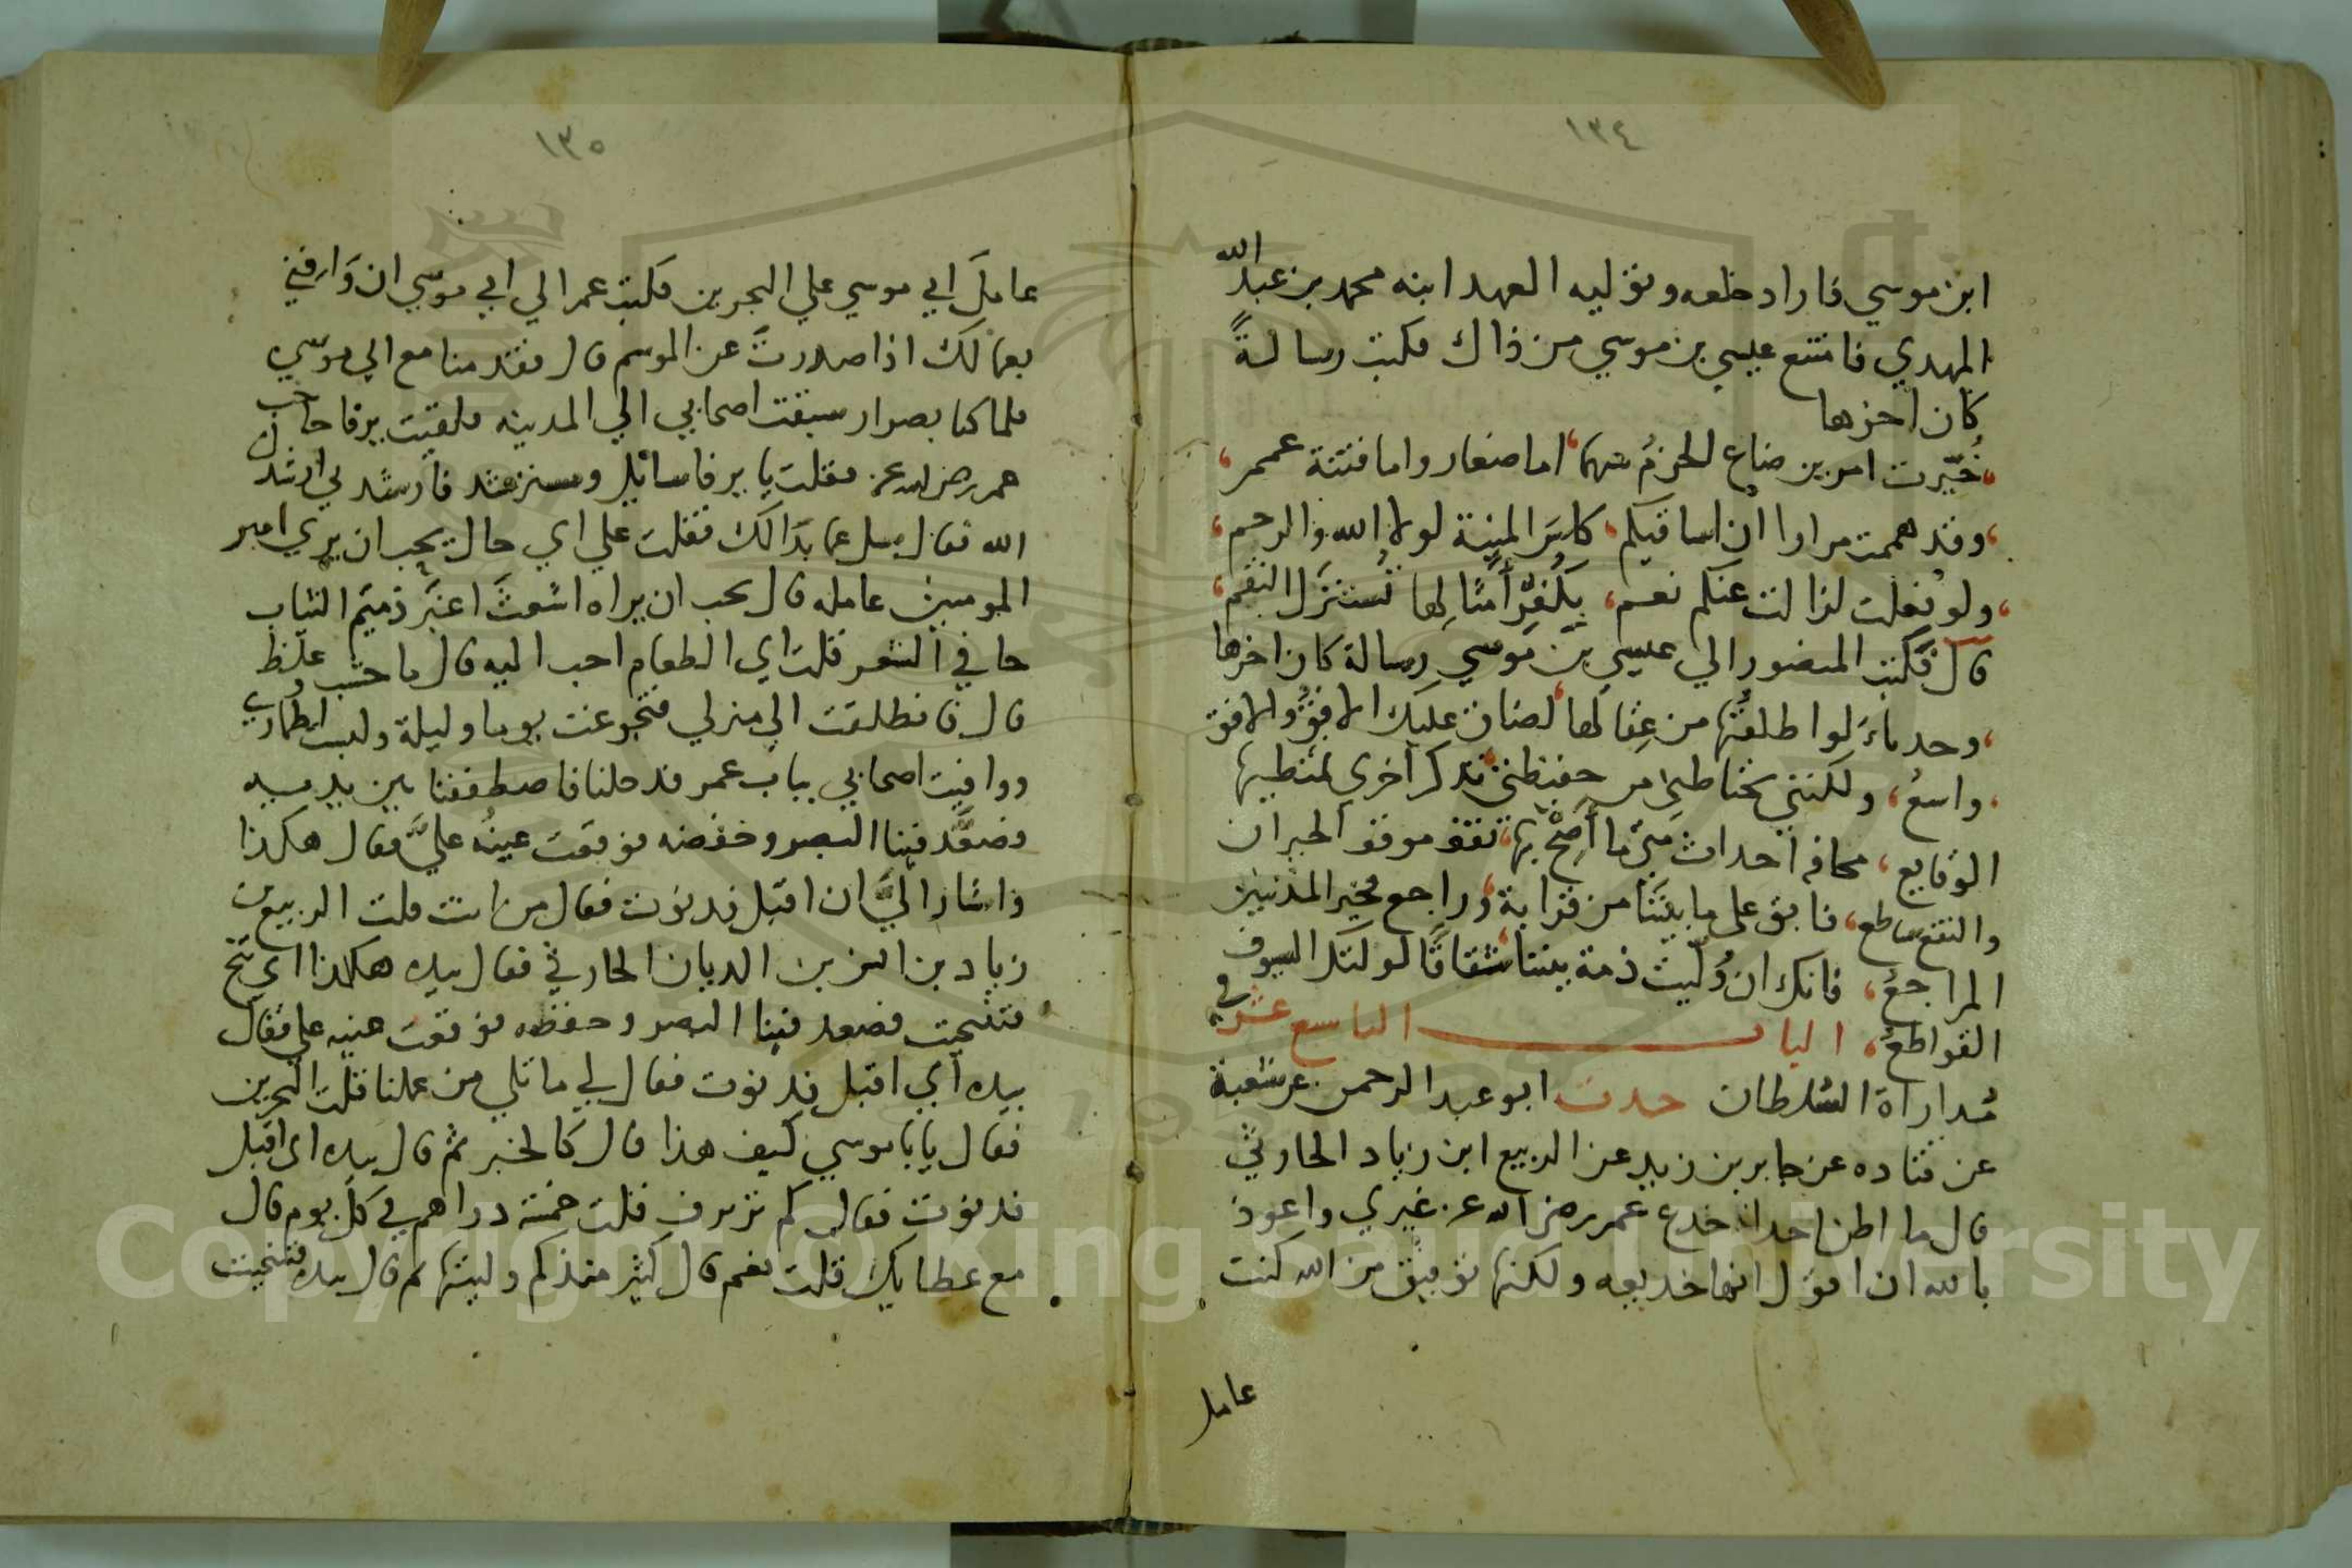 ١٣٤
ابن موسي فاراد خلعه وتوليه العهد ابنه محمد بن عبد الله
المهدي فامتنع عيسي بن موسي من ذاك فكتب رسالةً
كان اخرها
خُيّرت امرين ضاع الحزمُ بينهما اما صغار واما فتنة عمم
وقد هممت مرارا ان اساقيكم كاسَ المنية لولا الله والرحم
ولو فعلت لزالت عنكم نعم بكُفرِ أمثالِها تُستنزَل النقم
قال فكتب المنصور الي عيسي بن موسي رسالة كان اخرها
وحدباءَ لو اطلقتُها من عِقالها لضاق عليك الافقُ والافق
واسعُ ولكنني تختاطني من حفيظتي تذكر أخرى
الوقايع مخافة احداث متى ما تقف موقف الحيران
والنقع ساطع فابق على ما بيننا من قرابة وراجع فخير المذنبين
المراجعُ فانك ان وُلّيتَ ذمة بيننا شقاقًا السيوف
القواطعُ الباب التاسع عشر في
مُداراة السُلطان حدث ابو عبد الرحمن عن شعبة
عن قتاده عن جابر بن زيد عن الربيع ابن زياد الحارثي
قال ما اظن احدا خدع عمر رضى الله عنه غيري واعوذ
بالله ان اقول انها خديعه ولكنها توفيق من الله كنت
عامل
١٣٥
عاملَ ابي موسي علي البحرين فكتب عمر الي ابي موسي ان وَافِني
بعمالك اذا صدرتَ عن الموسم قال فقدمنا مع ابي موسي
فلما كنا بصرار سبقت اصحابي الي المدينه فلقيت يرفا حاجب
عمر رضى الله عنه فقلت يا يرفا سائل ومسترشد فارشد بي ارشدك
الله فقال سل عما بدَا لك فقلت علي اي حال يحب ان يري امير
المومنين عامله قال يحب ان يراه اشعثَ اغبَرَ ذميم الثياب
حافي الشعر قلت اي الطعام احب اليه قال ما خشب وغلظ
قال فانطلقت الي منزلي فتجوعت يوما وليلة ولبست اطماري
ووافيت اصحابي بباب عمر فدخلنا فاصطففنا بين يديه
وصعَّد فينا البصر وخفضه فوقعت عينُه عليَّ فقال هكذا
واشار اليَّ ان اقبل فدنوت فقال من انت قلت الربيع بن
زياد بن انس بن الديان الحارثي فقال بيده هكذا اي تنح
فتنحيت فصعد فينا البصر وخفظه فوقعت عينه علي فقال
بيده أي اقبل فدنوت فقال لي ما تلي من عملنا قلت البحرين
فقال يابا موسي كيف هذا قال كالخبر ثم قال بيده اى اقبل
فدنوت فقال كم ترزق قلت خمسة دراهم في كل يوم قال
مع عطايك قلت نعم قال كثير منذ كم وليتها ثم قال بيده فتنحيت
Copyright © King Saud University